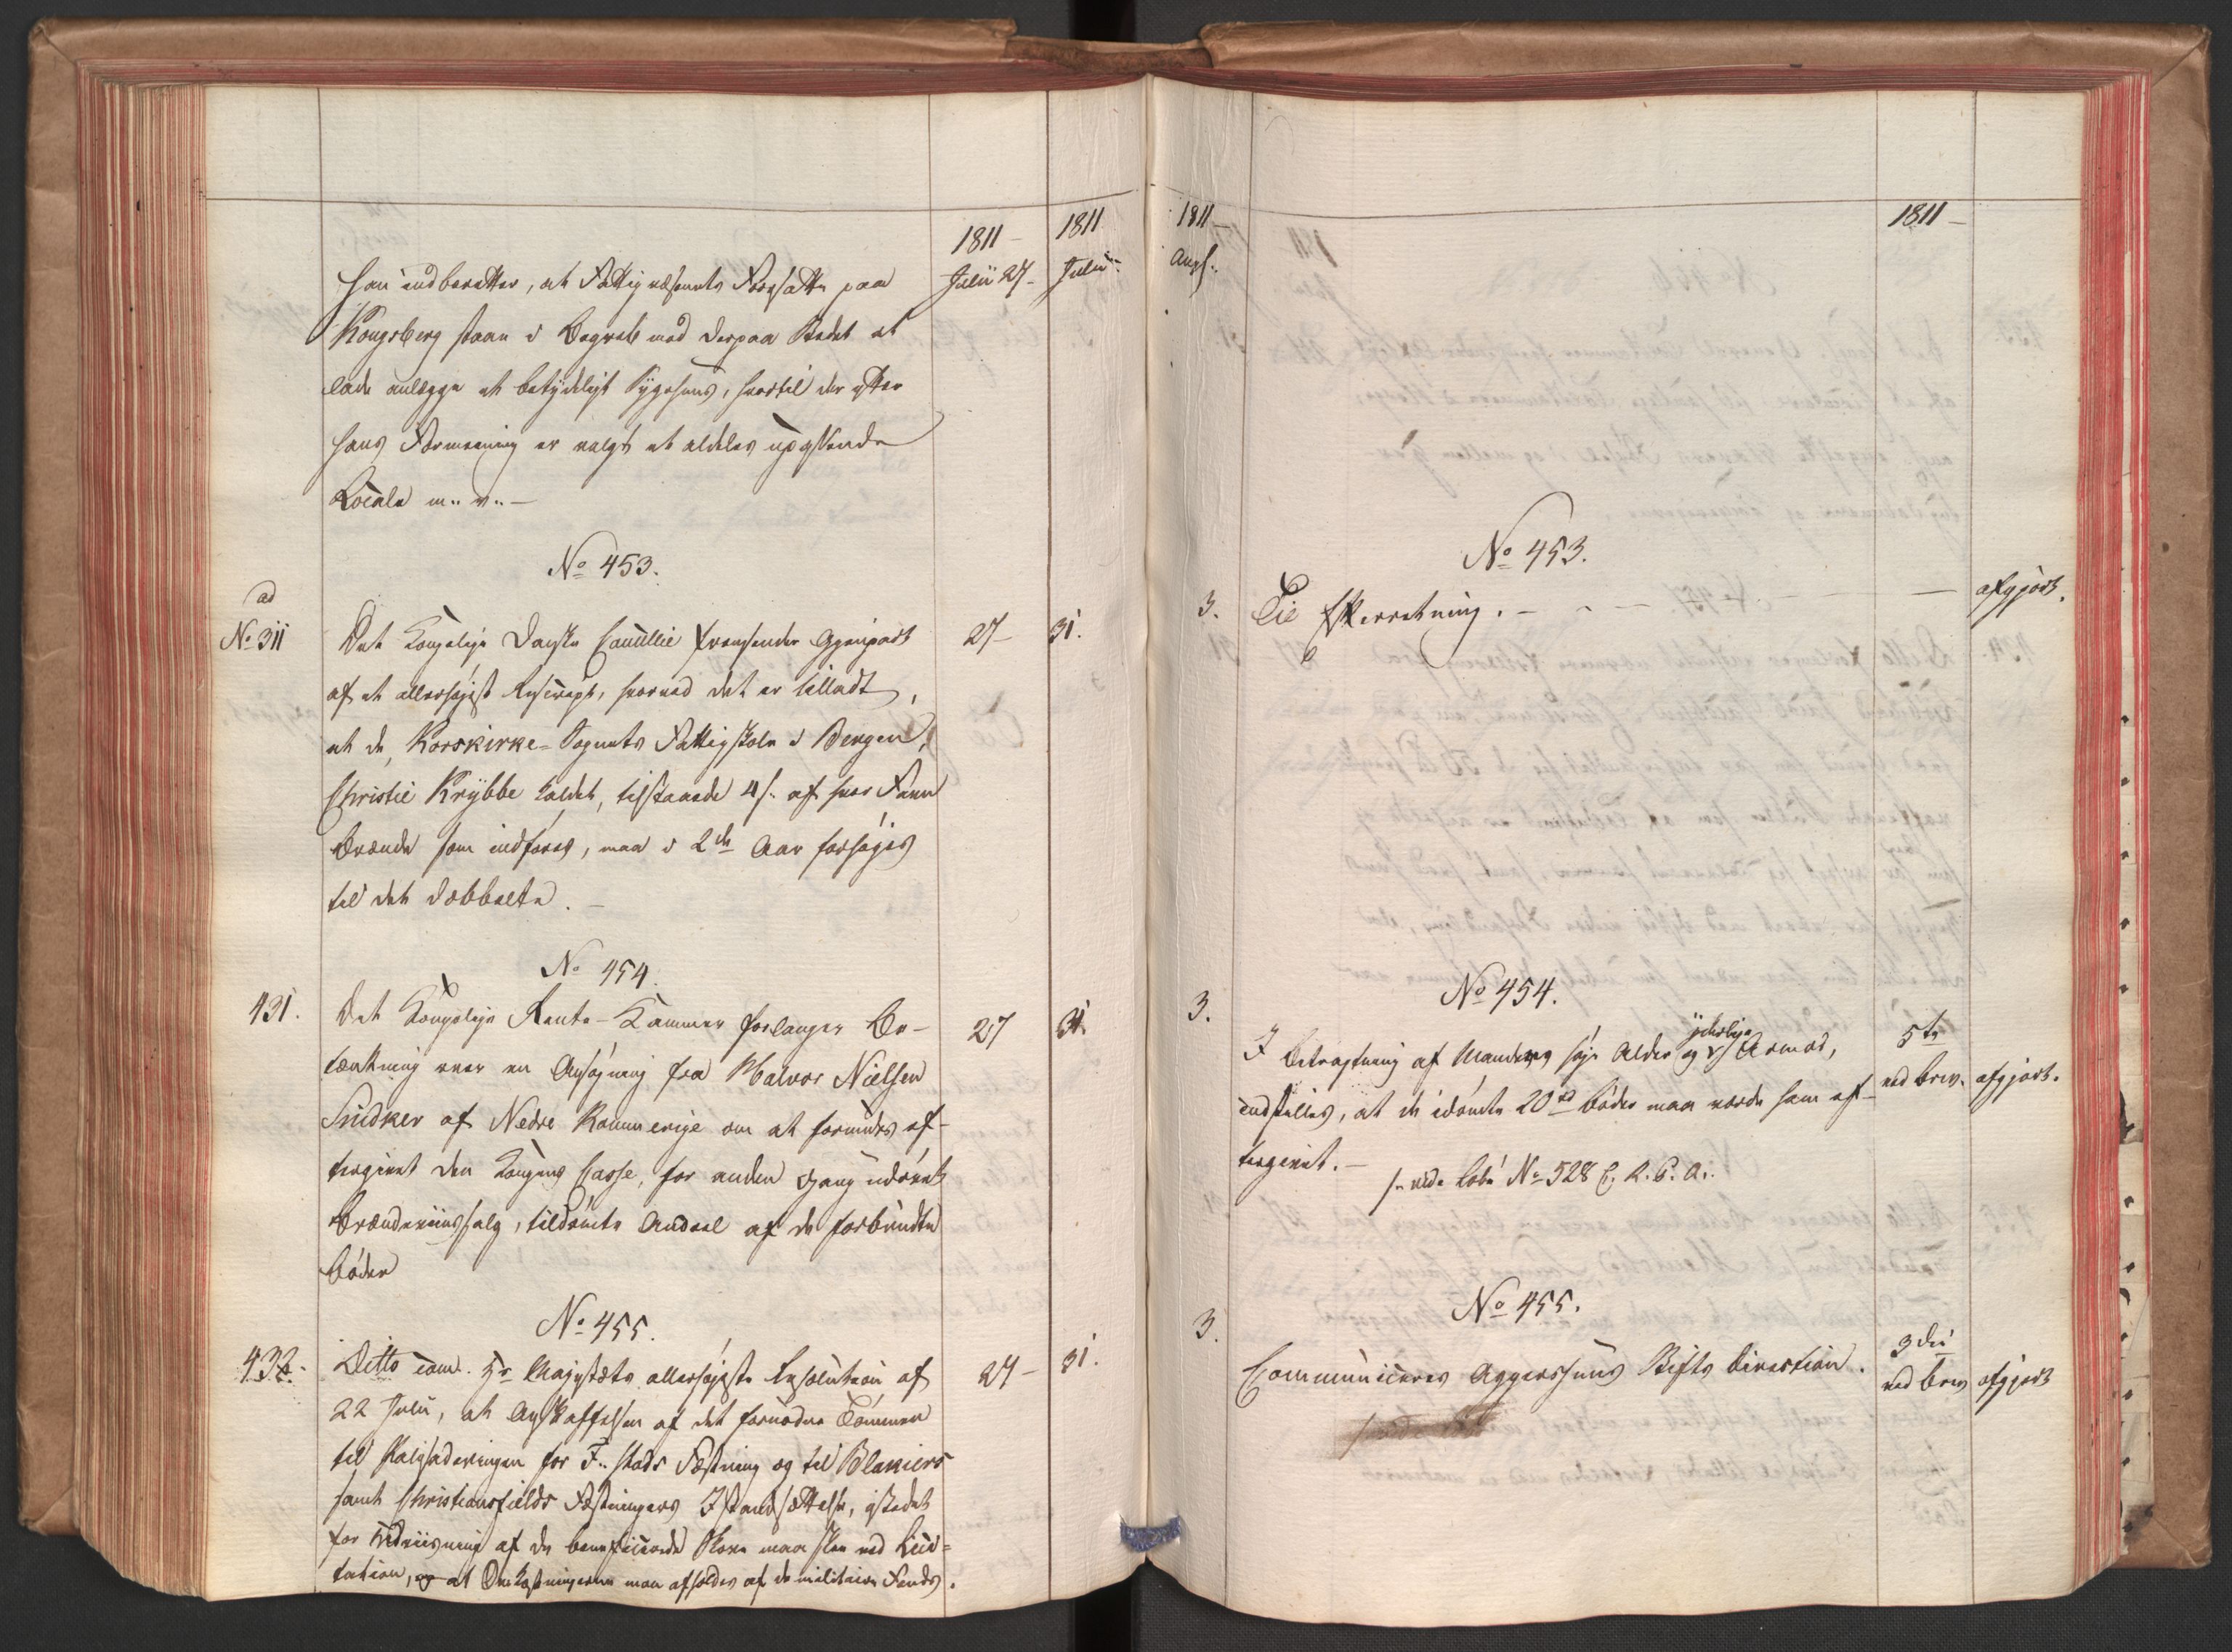 1811
Julii 27
1811
Julii
han indberetter, at Fattigvæsenets Foresatte paa
Kongsberg staae i Begreb med derpaa Stedet at
lade anlægge et betydeligt Sygehuus, hvortil der efter
hans Formeening er valgt et aldeles upassende
Locale m.. v.. —
No 453.
ad
No 311
Det Kongelige Danske Cancellie fremsender Gjenpart
27 — 31.
af et allerhøjest Rescript, hvorved det er tilladt,
at de, Korskirke-Sognets Fattigskole i Bergen,
Christie Krÿbbe kaldet, tilstaaede 4 s. af hver Favn
Brænde som indføres, maa i 2de Aar forhøjes
til det dobbelte. —
No 454
431.
Det Kongelige Rente-Kammer forlanger Be-
27 31.
tænkning over en Ansøgning fra Halvor Nielsen
Snidker af Nedre Rommerige om at forundes ef-
tergivet den Kongens Casse, for anden Gang udøvet
Brændeviinssalg, tildømte Andeel af de forbrudte
Bøder
No 455.
432.
Ditto com. Hs Majestæts allerhøjeste Resolution af
27 — 31.
22 Julii, at Anskaffelsen af det fornødne Tømmer
til Palisaderingen for F.. stads Fæstning og til Blakiers
samt Christiansfields Fæstningers Istandsættelse, istedet
for Udviisning af de beneficerede Skove maa skee ved Lici-
tation, og at Omkostningerne maa afholdes af de militaire Fonds.
1811
Augs.
1811 —
No 453.
3. Til Efterretning. — — — afgjort.
No 454.
3.
I Betragtning af Mandens høje Alder og yderlige Armod,
5te
indstilles, at de idømte 20 rd Bøder maa vorde ham ef-
ved brev. afgjort.
tergivet. —
/: vide Cob: No 528 C. A. C. A:.
No 455.
3.
Communiceres Aggershuus Stifts Direction.
3die
ved brev afgjort